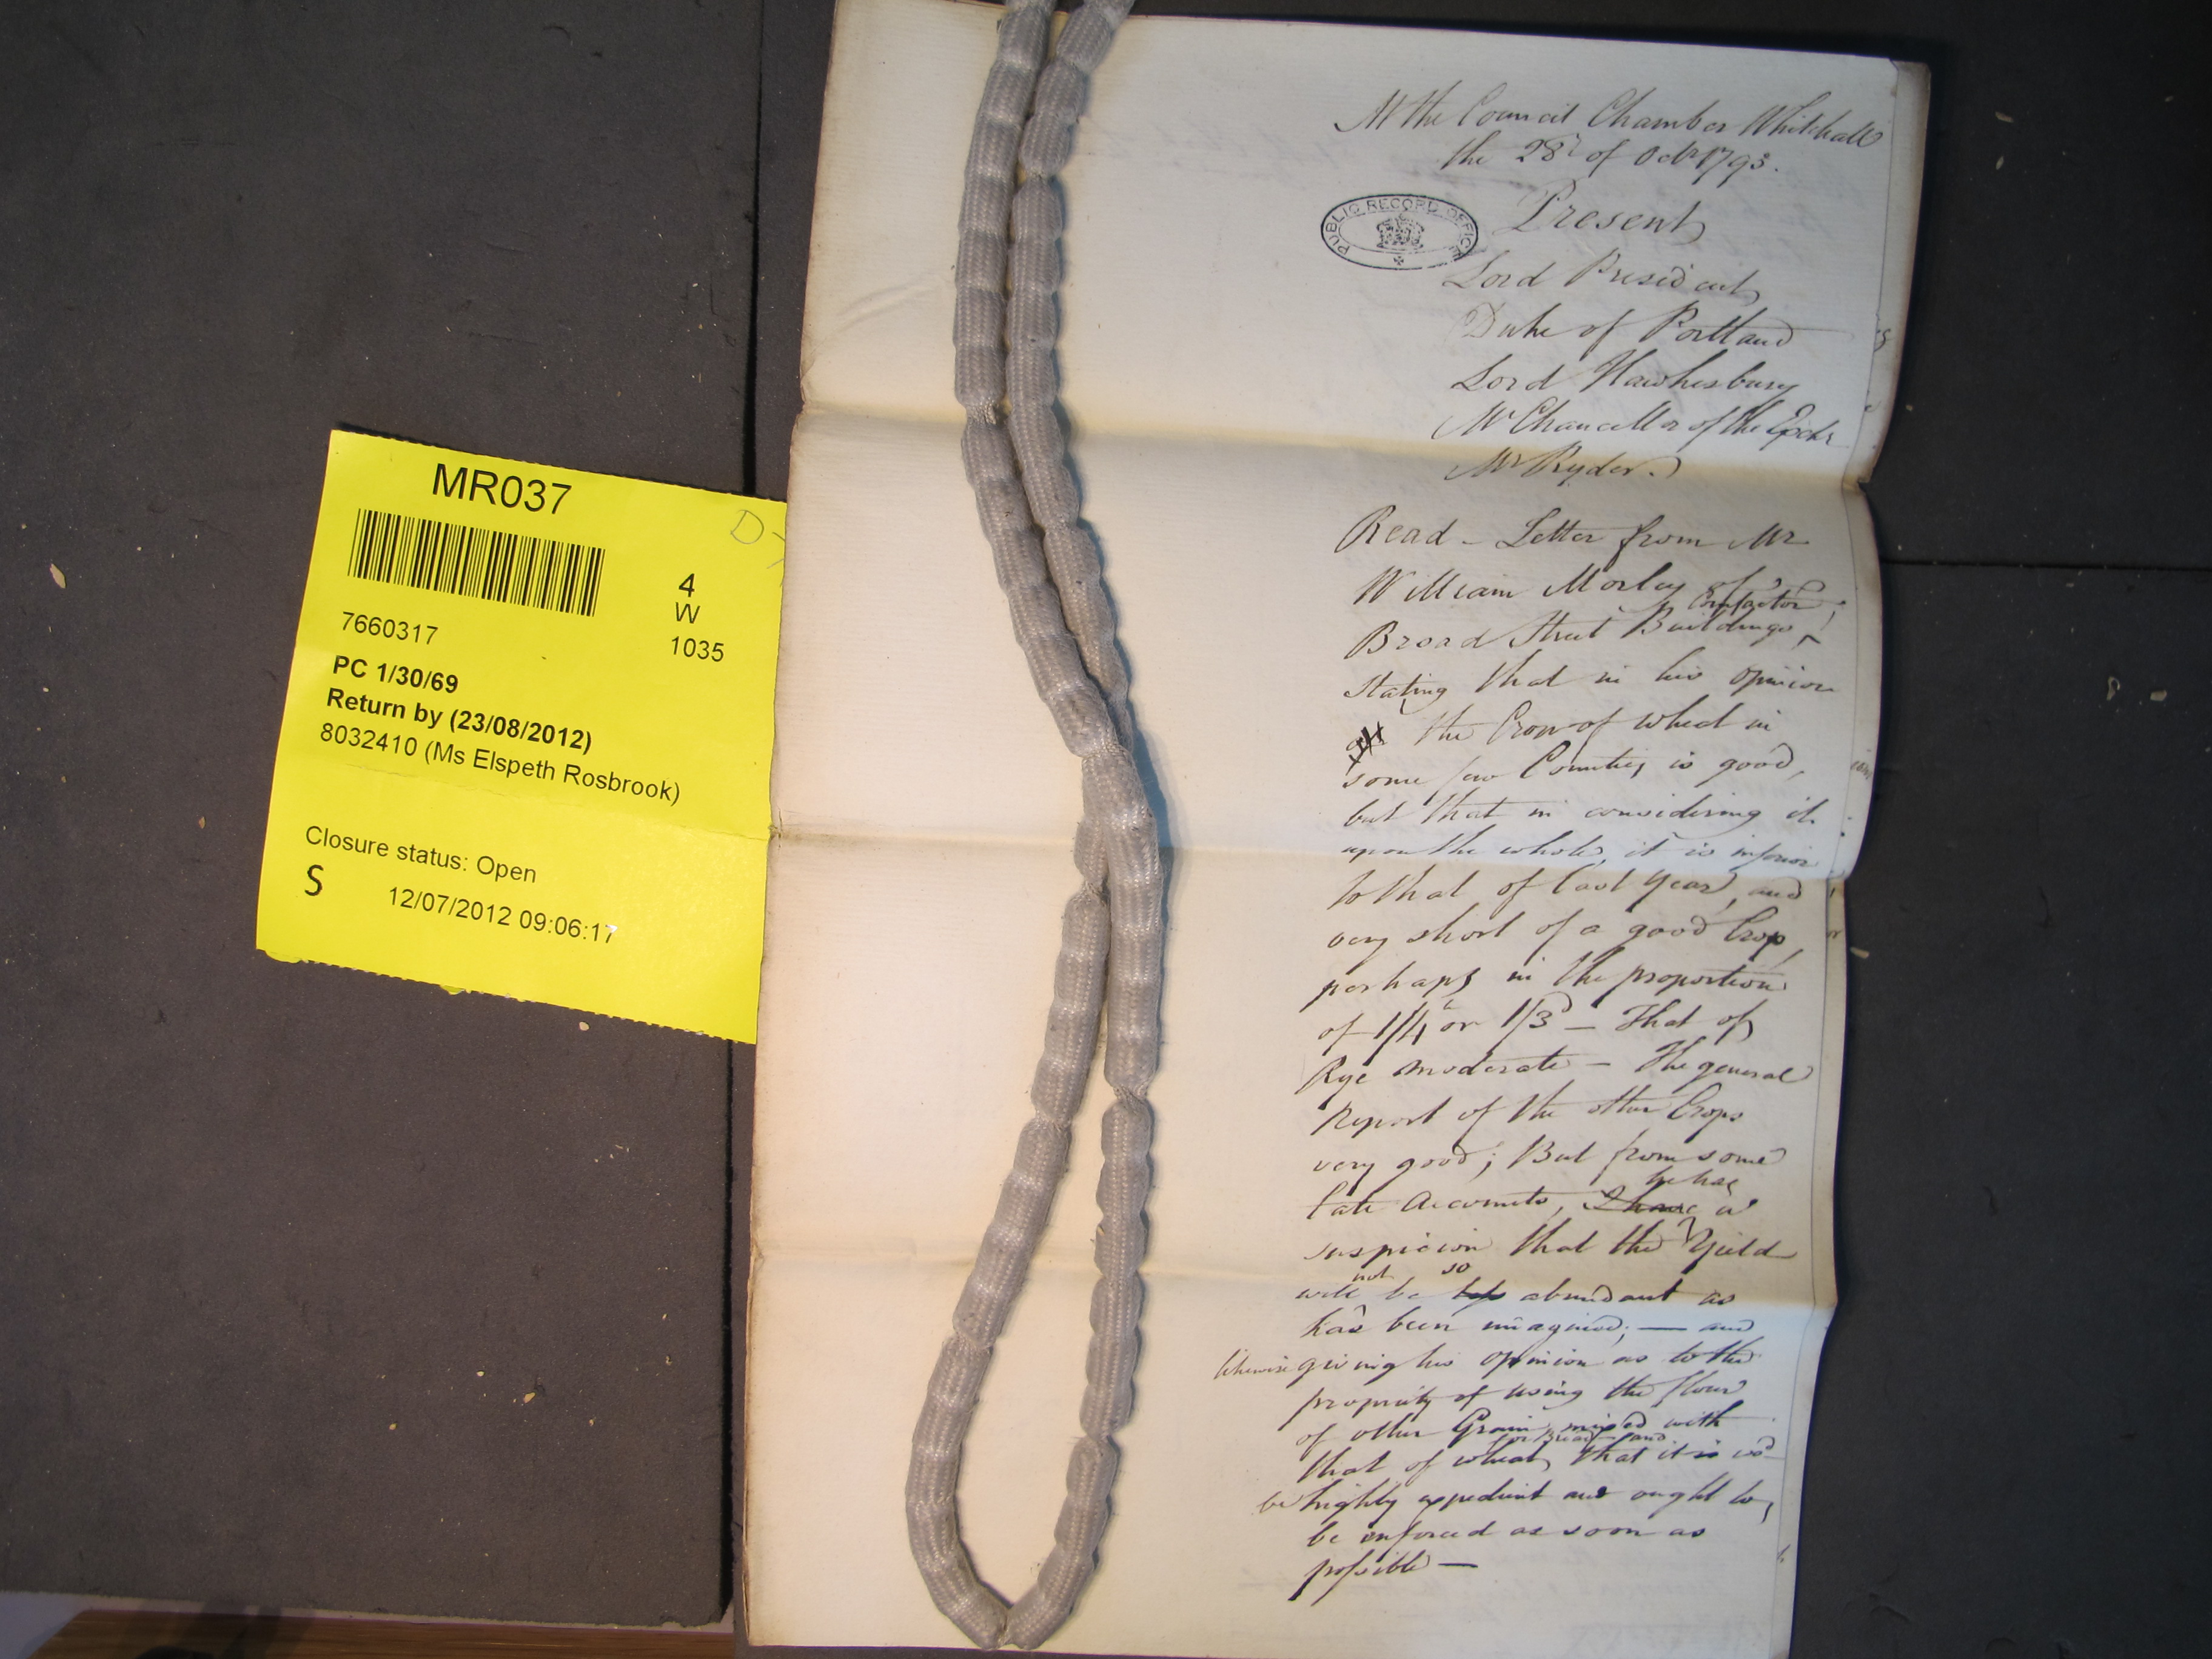 MR037
4
W
1035
7660317
PC 1/30/69
Return by (23/08/2012)
8032410 (Ms Elspeth Rosbrook)
Closure status: Open
S
12/07/2012 09:06:17
At the Council Chamber Whitehall
the 28th of Octr 1795.
PUBLIC RECORD OFFICE
Present
Lord President
Duke of Portland
Lord Hawkesbury
Mr Chancellor of the Exchr
Mr Ryder.
Read - Letter from Mr
William Morley of
Cornfactor
Broad Street Buildings
stating that in his opinion
the Crop of wheat in
some few Counties is good,
but that in considering it
upon the whole, it is inferior
to that of last year, and
very short of a good Crop,
perhaps in the proportion
of 1/4th or 1/3d — That of
Rye moderate — The general
Report of the other Crops
very good; But from some
he has
late Accounts, I have a
suspicion that the Yield
not so
will be less abundant as
has been imagined; — and
likewise giving his opinion as to the
propriety of using the flour
of other Grain mixed with
for Bread and
that of wheat, that it is wod
be highly expedient and ought to
be enforced as soon as
possible —